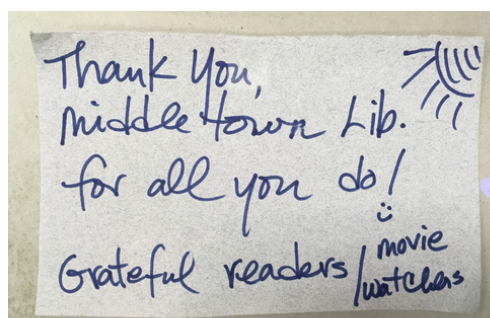 Thank you,
Middletown Lib.
for all you do!
Grateful readers / movie
watchers